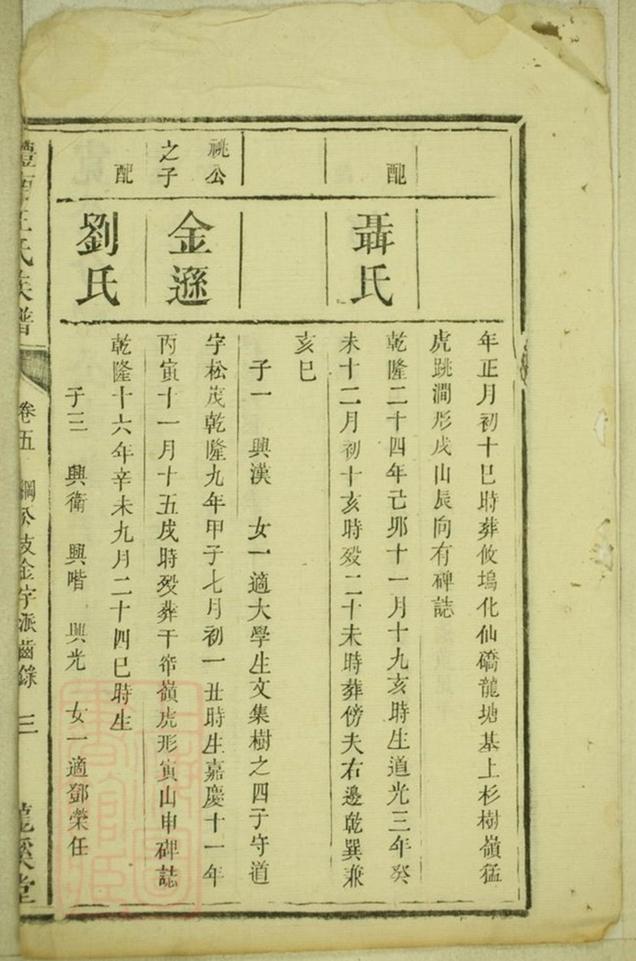 年正月初十巳時葬攸塢化仙礄龍塘基上杉樹嶺猛
虎跳澗形戌山辰向有碑誌
配
聶氏
乾隆二十四年己卯十一月十九亥時生道光三年癸
未十二月初十亥時歿二十未時葬傍夫右邊乾巽兼
亥巳
子一 興漢 女一適大學生文集樹之四子守道
祧公
之子
金遜
字松茂乾隆九年甲子七月初一丑時生嘉慶十一年
丙寅十一月十五戌時歿葬干帘嶺虎形寅山申碑誌
配
劉氏
乾隆十六年辛未九月二十四巳時生
子三 興衛 興喈 興光 女一適鄧榮任
氏族譜
卷五
金字派齒錄 三
堂